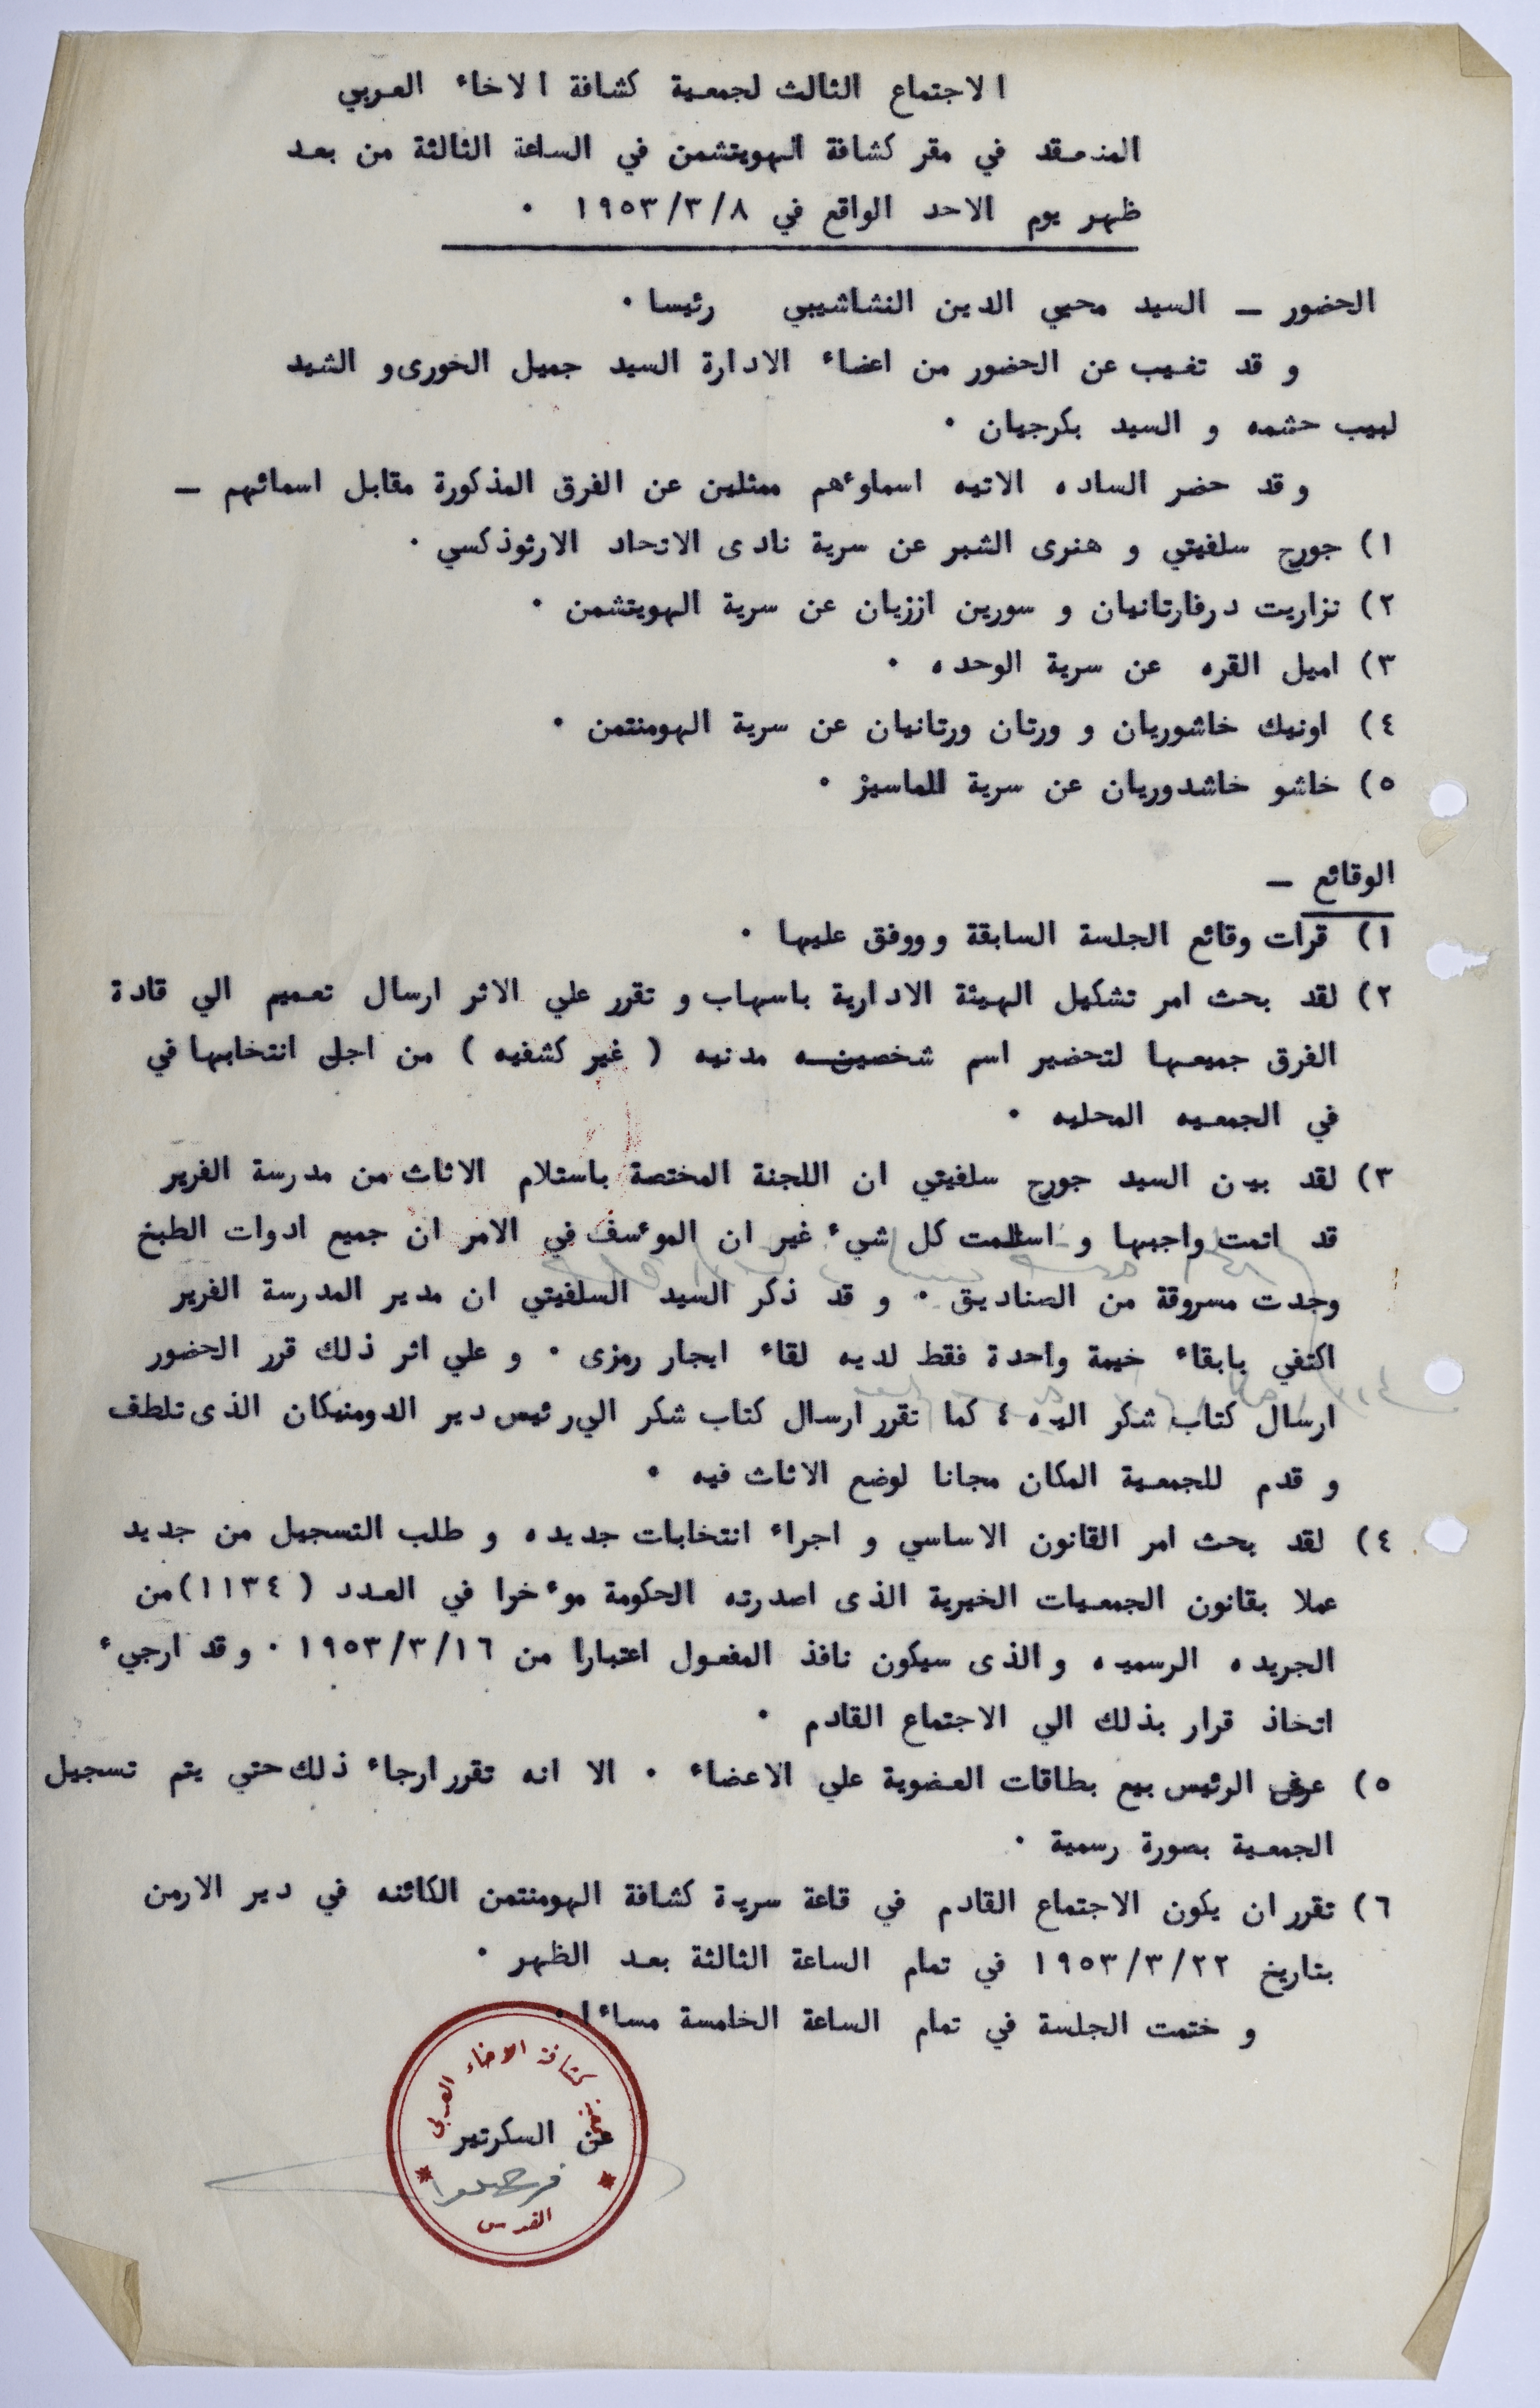 الاجتماع الثالث لجمعية كشافة الاخاء العربي
المنعقد في مقر كشافة الهويتشمن في الساعة الثالثة من بعد
ظهر يوم الاحد الواقع في ١٩٥٣/٣/٨ ٠
الحضور ـ السيد محيي الدين النشاشيبي رئيسا ٠
و قد تغيب عن الحضور من اعضاء الادارة السيد جميل الخورى و الشيد
لبيب حشمه و السيد بكرجيان ٠
و قد حضر الساده الاتيه اسماوءهم ممثلين عن الفرق المذكورة مقابل اسمائهم ـ
١) جورج سلفيتي و هنرى الشبر عن سرية نادى الاتحاد الارثوذكسي ٠
٢) نزاريت درفارتانيان و سورين اززيان عن سرية الهويتشمن ٠
٣) اميل القره عن سرية الوحده ٠
٤) اونيك خاشوريان و ورتان ورتانيان عن سرية الهومنتمن ٠
٥) خاشو خاشدوريان عن سرية الماسيز ٠
الوقائع ـ
١) قرات وقائع الجلسة السابقة و ووفق عليها ٠
٢) لقد بحث امر تشكيل الهيئة الادارية باسهاب و تقرر علي الاثر ارسال تعميم الي قادة
الفرق جميعها لتحضير اسم شخصين مدنيه ( غير كشفيه ) من اجل انتخابها في
في الجمعيه المحليه ٠
٣) لقد بين السيد جورج سلفيتي ان اللجنة المختصة باستلام الاثاث من مدرسة الفرير
قد اتمت واجبها و استلمت كل شيء غير ان الموءسف في الامر ان جميع ادوات الطبخ
وجدت مسروقة من الصناديق ٠ و قد ذكر السيد السلفيتي ان مدير المدرسة الفرير
اكتفي بابقاء خيمة واحدة فقط لديه لقاء ايجار رمزى ٠ و علي اثر ذلك قرر الحضور
ارسال كتاب شكر اليه ٤ كما تقرر ارسال كتاب شكر الي رئيس دير الدومنيكان الذى تلطف
و قدم للجمعية المكان مجانا لوضع الاثاث فيه ٠
٤) لقد بحث امر القانون الاساسي و اجراء انتخابات جديده و طلب التسجيل من جديد
عملا بقانون الجمعيات الخيرية الذى اصدرته الحكومة موءخرا في العدد ( ١١٣٤) من
الجريده الرسميه و الذى سيكون نافذ المفعول اعتبارا من ١٩٥٣/٣/١٦ ٠ و قد ارجيء
اتخاذ قرار بذلك الي الاجتماع القادم ٠
٥) عرض الرئيس بيع بطاقات العضوية علي الاعضاء ٠ الا انه تقرر ارجاء ذلك حتي يتم تسجيل
الجمعية بصورة رسمية ٠
٦) تقرر ان يكون الاجتماع القادم في قاعة سرية كشافة الهومنتمن الكائنه في دير الارمن
بتاريخ ١٩٥٣/٣/٢٢ في تمام الساعة الثالثة بعد الظهر ٠
و ختمت الجلسة في تمام الساعة الخامسة مساءا ٠
كشافة الاخاء العربي
عن السكرتير
القدس